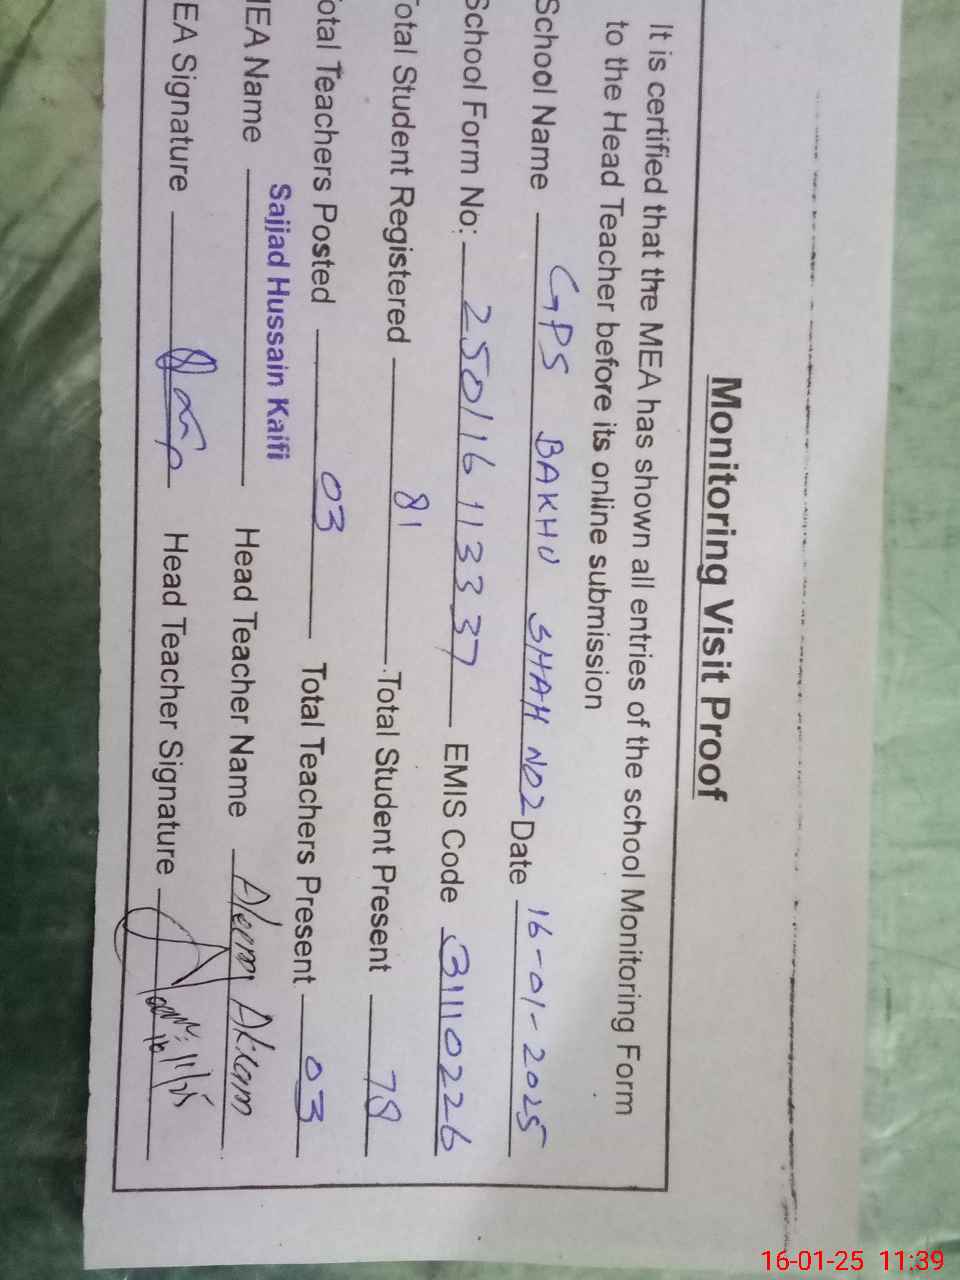 Monitoring Visit Proof
It is certified that the MEA has shown all entries of the school Monitoring Form
to the Head Teacher before its online submission
School Name GPS BAKHU SHAH NO2 Date 16-01-2025
School Form No: 250116113337 EMIS Code 31110226
otal Student Registered 81 Total Student Present 78
otal Teachers Posted 03 Total Teachers Present 03
MEA Name Sajjad Hussain Kaifi Head Teacher Name Akram
EA Signature Head Teacher Signature
16-01-25 11:39